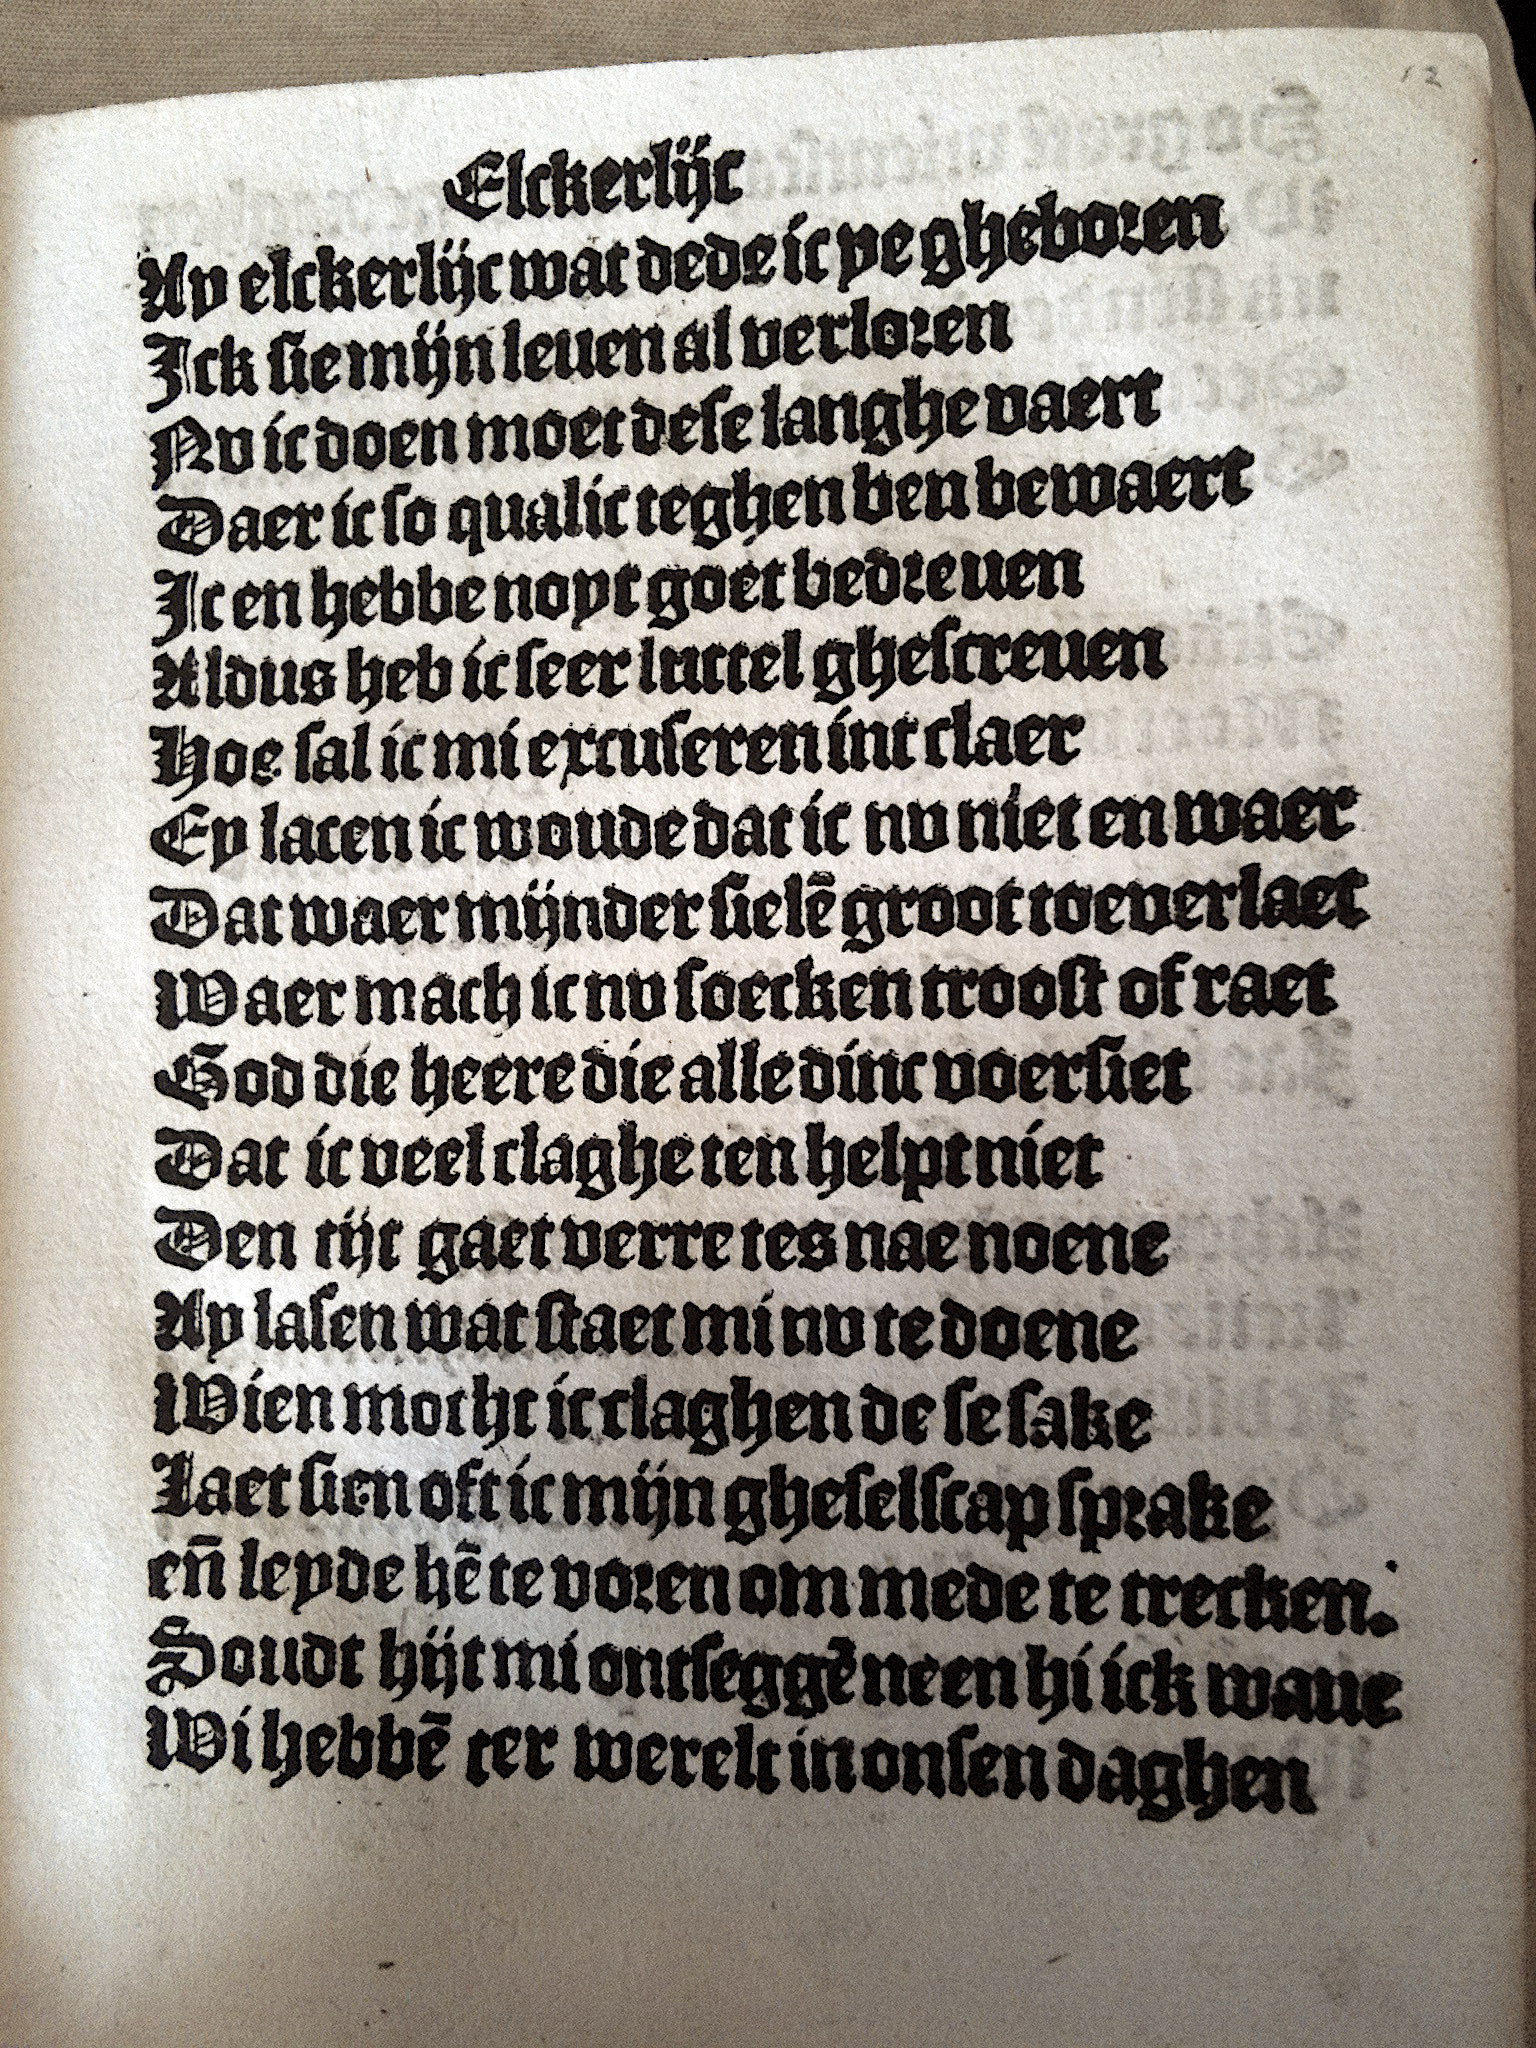 12
Elckerlijc
Ay elckerlijc wat dede ic ye gheboren
Ick sie mijn leuen al verloren
Nv ic doen moet dese langhe vaert
Daer ic so qualic teghen ben bewaert
Ic en hebbe noyt goet bedreuen
Aldus heb ic seer luttel ghescreuen
Hoe sal ic mi excuseren int claer
Ey laten ic woude dat ic nv niet en waer
Dat waer mijnder sielē groot toeverlaet
Waer mach ic nv soecken troost of raet
God die heere die alle dinc voersiet
Dat ic veel claghe ten helpt niet
Den tijt gaet verre tes nae noene
Ay lasen wat staet mi nv te doene
Wien mocht ic claghen de se sake
Laet sien oft ic mijn gheselscap sprake
en̄ leyde hē te voren om mede te trecken.
Soudt hijt mi ontseggē neen hi ick wane
Wi hebbē ter werelt in onsen daghen